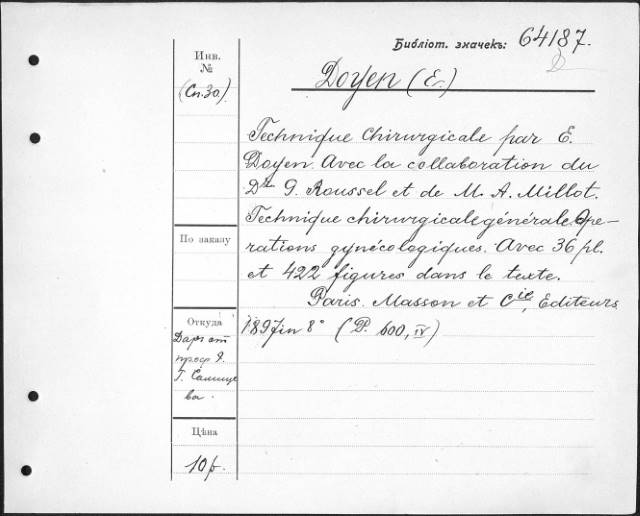 Библіот. значекъ: 64187.
D
Инв.
№
(Сп.30.)
Doyen (E.)
Technique Chirurgicale par E.
Doyen. Avec la collaboration du
Dr G. Roussel et de M. A. Millot.
Technique chirurgicale générale. Opé-
rations gynécologiques. Avec 36 pl.
et 422 figures dans le texte.
Paris. Masson et Cie, Editeurs
1897 in 8° (P. 600, IV)
По заказу
Откуда
Даръ от
проф.
Г. Салище
ва.
Цѣна
10 р.